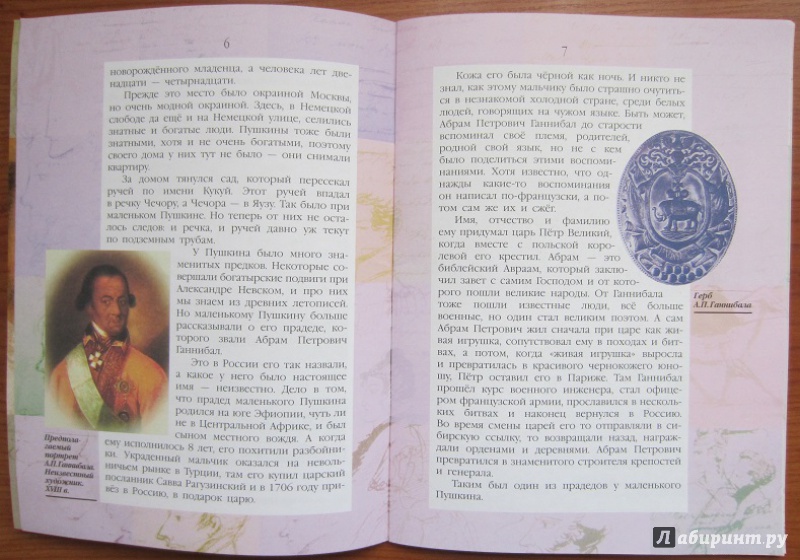 6
новорождённого младенца, а человека лет две-
надцати — четырнадцати.
Прежде это место было окраиной Москвы,
но очень модной окраиной. Здесь, в Немецкой
слободе да ещё и на Немецкой улице, селились
знатные и богатые люди. Пушкины тоже были
знатными, хотя и не очень богатыми, поэтому
своего дома у них тут не было — они снимали
квартиру.
За домом тянулся сад, который пересекал
ручей по имени Кукуй. Этот ручей впадал
в речку Чечору, а Чечора — в Яузу. Так было при
маленьком Пушкине. Но теперь от них не оста-
лось следов: и речка, и ручей давно уж текут
по подземным трубам.
У Пушкина было много зна-
менитых предков. Некоторые со-
вершали богатырские подвиги при
Александре Невском, и про них
мы знаем из древних летописей.
Но маленькому Пушкину больше
рассказывали о его прадеде, ко-
торого звали Абрам Петрович
Ганнибал.
Это в России его так назвали,
а какое у него было настоящее
имя — неизвестно. Дело в том,
что прадед маленького Пушкина
родился на юге Эфиопии, чуть ли
не в Центральной Африке, и был
сыном местного вождя. А когда
ему исполнилось 8 лет, его похитили разбойни-
ки. Украденный мальчик оказался на неволь-
ничьем рынке в Турции, там его купил царский
посланник Савва Рагузинский и в 1706 году при-
вёз в Россию, в подарок царю.
Предпола-
гаемый
портрет
А.П.Ганнибала.
Неизвестный
художник.
XVIII в.
7
Кожа его была чёрной как ночь. И никто не
знал, как этому мальчику было страшно очутить-
ся в незнакомой холодной стране, среди белых
людей, говорящих на чужом языке. Быть может,
Абрам Петрович Ганнибал до старости
вспоминал своё племя, родителей,
родной свой язык, но не с кем
было поделиться этими воспоми-
наниями. Хотя известно, что од-
нажды какие-то воспоминания
он написал по-французски, а по-
том сам же их и сжёг.
Имя, отчество и фамилию
ему придумал царь Пётр Великий,
когда вместе с польской коро-
левой его крестил. Абрам — это
библейский Авраам, который заклю-
чил завет с самим Господом и от кото-
рого пошли великие народы. От Ганнибала
тоже пошли известные люди, всё больше
военные, но один стал великим поэтом. А сам
Абрам Петрович жил сначала при царе как жи-
вая игрушка, сопутствовал ему в походах и бит-
вах, а потом, когда «живая игрушка» выросла
и превратилась в красивого чернокожего юно-
шу, Пётр оставил его в Париже. Там Ганнибал
прошёл курс военного инженера, стал офице-
ром французской армии, прославился в несколь-
ких битвах и наконец вернулся в Россию.
Во время смены царей его то отправляли в си-
бирскую ссылку, то возвращали назад, награж-
дали орденами и деревнями. Абрам Петрович
превратился в знаменитого строителя крепостей
и генерала.
Таким был один из прадедов у маленького
Пушкина.
Герб
А.П.Ганнибала.
Лабиринт.ру